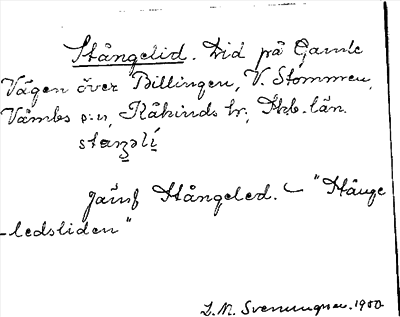 Stångelid. Lid på Gamle
Vägen över Billingen, V. Stommen,
Våmbs s:n, Kåkinds hr; Skb. län.
Jämf Stångeled. — "Stånge
-ledsliden"